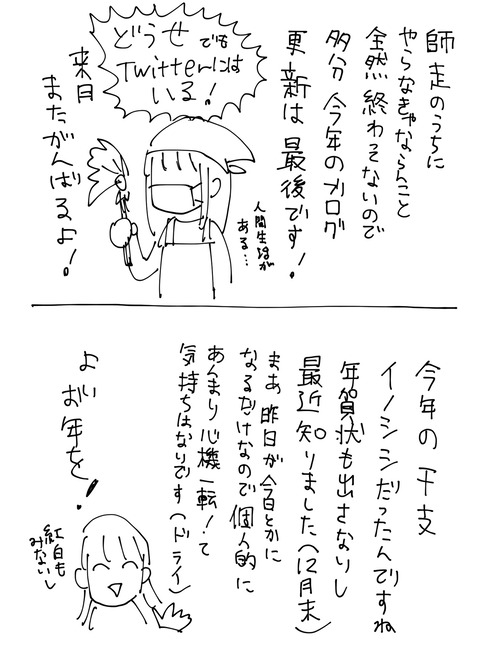 師走のうちに
やらなきゃならんこと
全然終わってないので
多分今年のブログ
更新は最後です!
どうせでも
Twitterには
いる!
人間生活が
ある…
来月
またがんばるよ!
今年の干支
イノシシだったんですね
年賀状も出さないし
最近知りました(12月末)
まあ昨日が今日とかに
なるだけなので個人的に
あんまり心機一転!て
気持ちはないです(ドライ)
よい
お年を!
紅白も
みないし